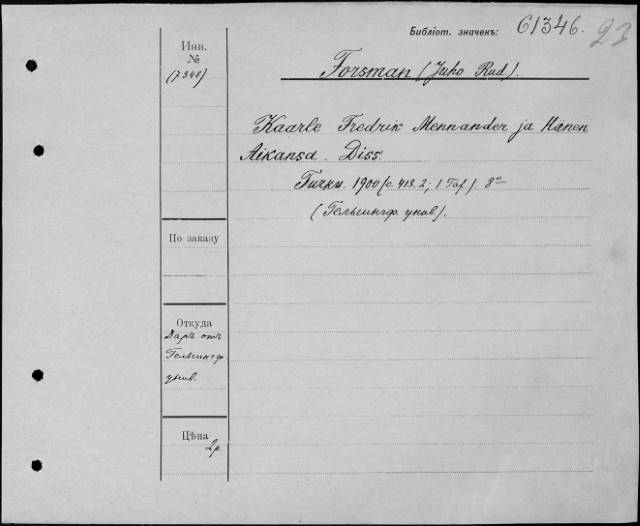 Библіот. значекъ: 61346. 23
Инв.
№
(7348)
Forsman (Juho Rud.).
Kaarle Fredrik Mennander ja Hänen
Aikansa. Diss.
Turku. 1900 (c. 413. 2; 1 Taf.). 8°
(Гельсингф. унив.).
По заказу
Откуда
Даръ отъ
Гельсингф.
унив.
Цѣна
2р.